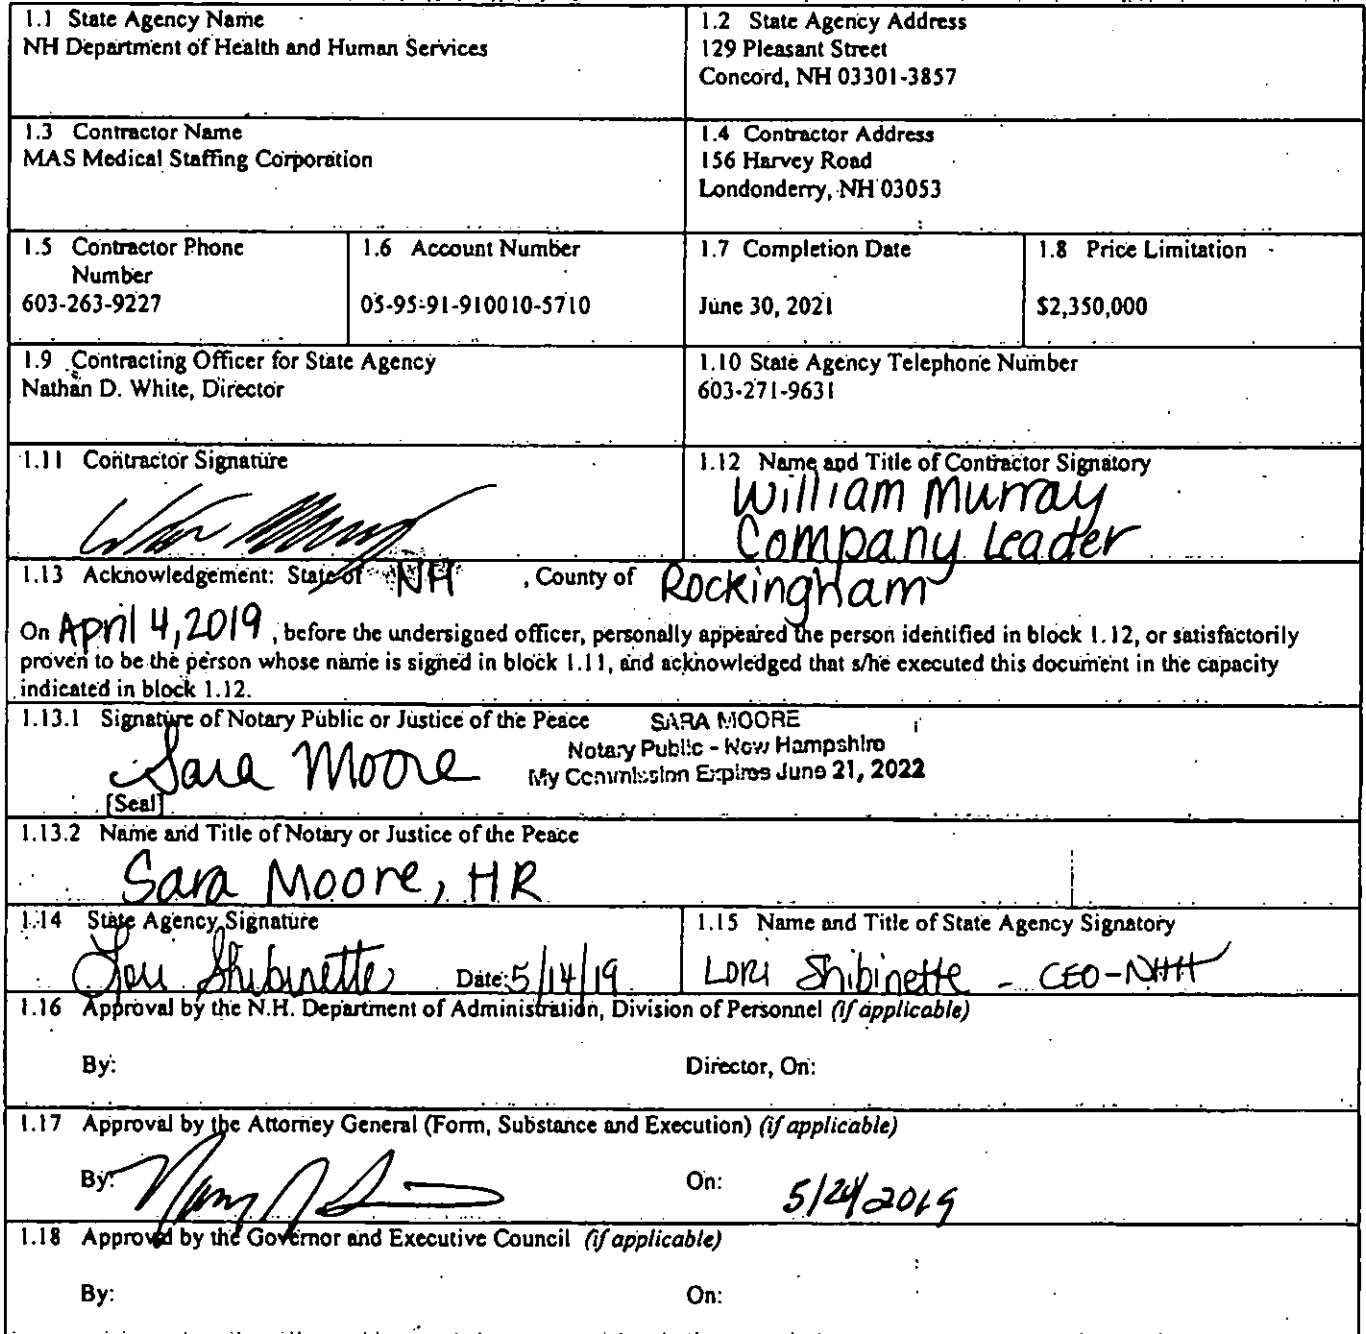 1.1 State Agency Name
NH Department of Health and Human Services
1.2 State Agency Address
129 Pleasant Street
Concord, NH 03301-3857
1.3 Contractor Name
MAS Medical Staffing Corporation
1.4 Contractor Address
156 Harvey Road
Londonderry, NH 03053
1.5 Contractor Phone
Number
603-263-9227
1.6 Account Number
05-95-91-910010-5710
1.7 Completion Date
June 30, 2021
1.8 Price Limitation
$2,350,000
1.9 Contracting Officer for State Agency
Nathan D. White, Director
1.10 State Agency Telephone Number
603-271-9631
1.11 Contractor Signature
1.12 Name and Title of Contractor Signatory
William Murray
Company Leader
1.13 Acknowledgement: State of NH , County of Rockingham
On April 4, 2019 , before the undersigned officer, personally appeared the person identified in block 1.12, or satisfactorily
proven to be the person whose name is signed in block 1.11, and acknowledged that s/he executed this document in the capacity
indicated in block 1.12.
1.13.1 Signature of Notary Public or Justice of the Peace
SARA MOORE
Notary Public - New Hampshire
My Commission Expires June 21, 2022
Sara Moore
[Seal]
1.13.2 Name and Title of Notary or Justice of the Peace
Sara Moore, HR
1.14 State Agency Signature
Lori Shibinette Date: 5/14/19
1.15 Name and Title of State Agency Signatory
Lori Shibinette - CEO-NHH
1.16 Approval by the N.H. Department of Administration, Division of Personnel (if applicable)
By: Director, On:
1.17 Approval by the Attorney General (Form, Substance and Execution) (if applicable)
By: On: 5/24/2019
1.18 Approval by the Governor and Executive Council (if applicable)
By: On: